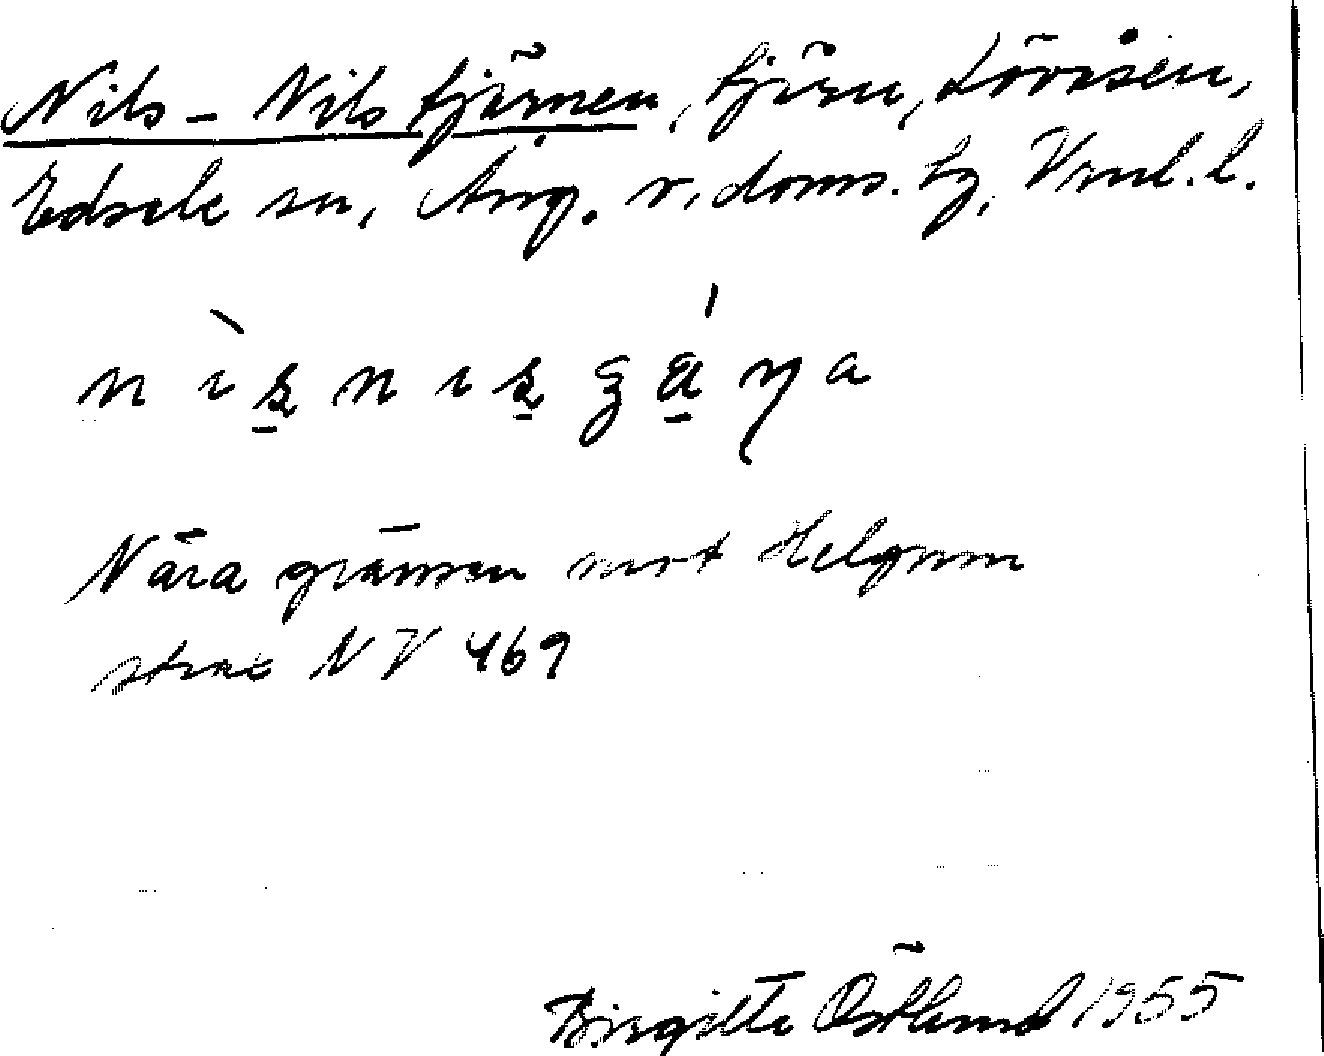 Nils-Nilstjärnen, tjärn, Lövåsen,
Edsele sn, Ång. v. doms. tg, Vnl. l.
Nära gränsen mot Helgum
strax NV 469
Birgitta Östlund 1955